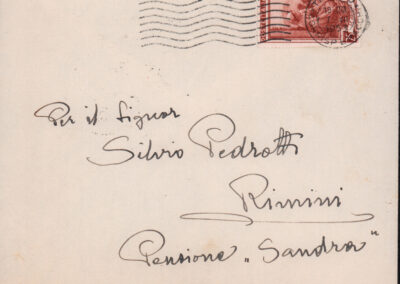 Per il Signor
Silvio Pedrotti
Rimini
Pensione „Sandra"